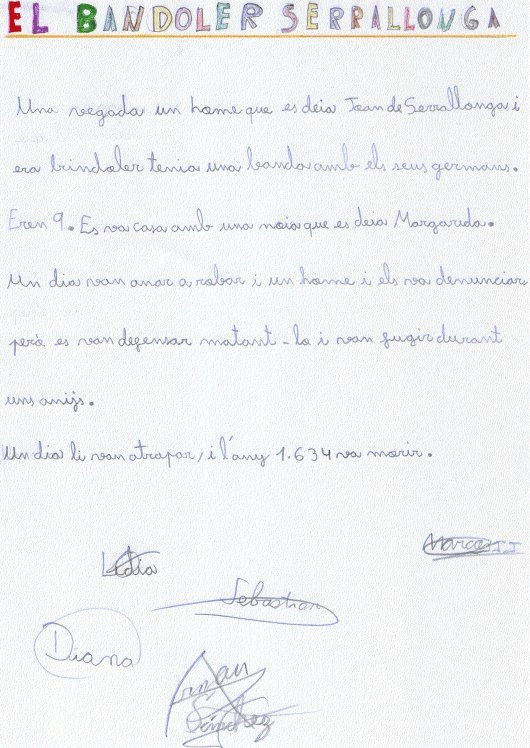 EL BANDOLER SERRALLONGA
Una vegada un home que es deia Joan de Serrallonga i
era brindoler tenia una banda amb els seus germans.
Eren 9. Es va casa amb una noia que es deia Margarida.
Un dia van anar a robar i un home i els va denunciar
però es van defensar matant-lo i van fugir durant
uns anys.
Un dia li van atrapar, i l'any 1.634 va morir.
Marc
Lidia
Sebastian
Diana
Arnau
Sánchez